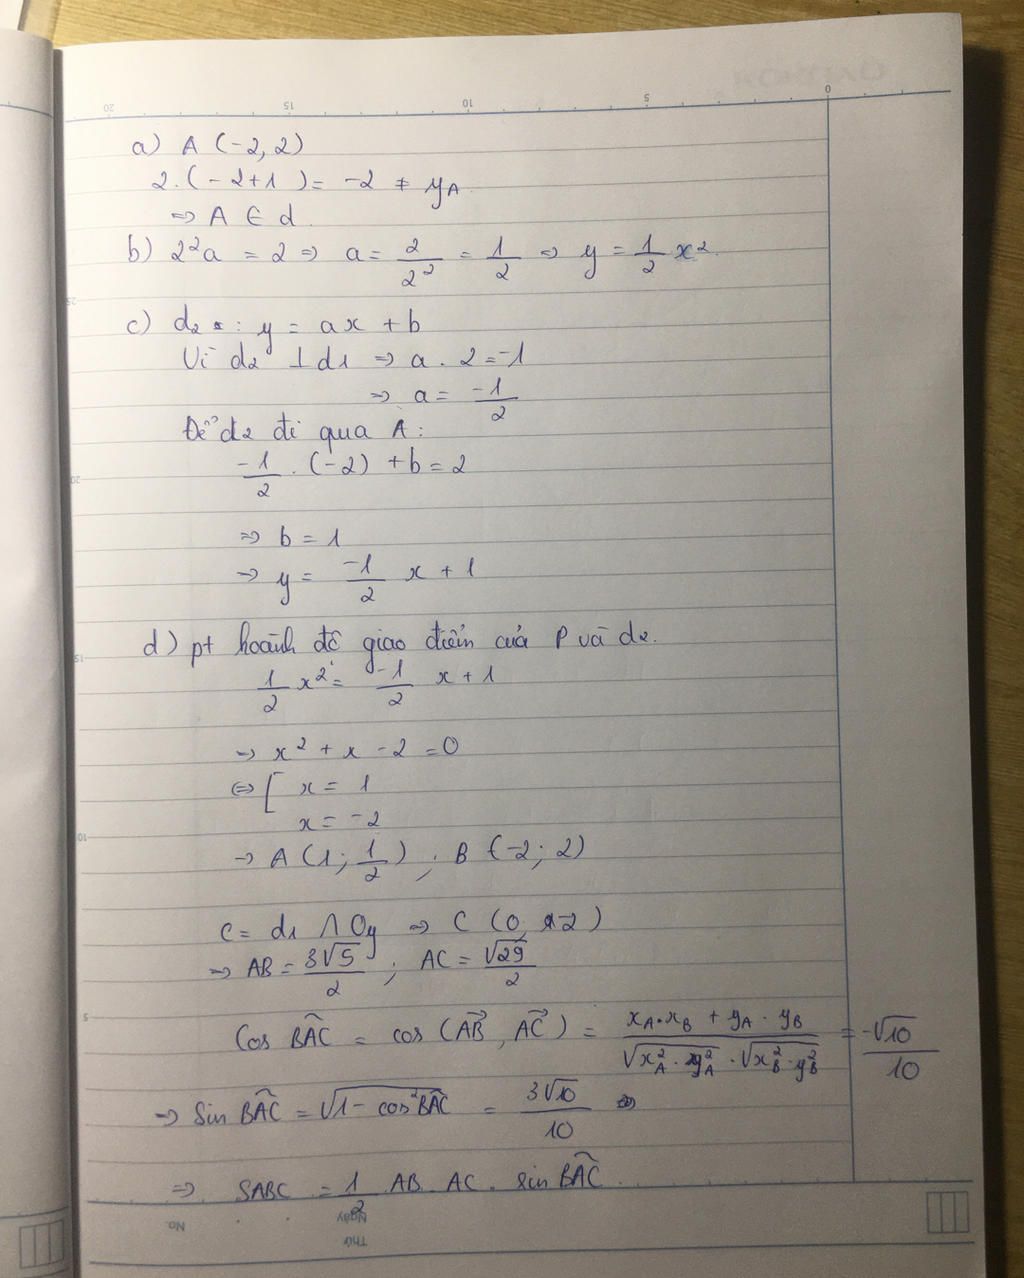 a) A (-2, 2)
2.(-2+1) = -2 ≠ yA
=> A ∈ d
b) 2²a = 2 => a = 2/2² = 1/2 => y = 1/2 x²
c) d2 : y = ax + b
Vì d2 ⊥ d1 => a . 2 = -1
=> a = -1/2
Để d2 đi qua A:
-1/2 . (-2) + b = 2
=> b = 1
=> y = -1/2 x + 1
d) pt hoành độ giao điểm của P và d2.
1/2 x² = -1/2 x + 1
=> x² + x - 2 = 0
<=> [ x = 1
x = -2
=> A (1; 1/2) ; B (-2; 2)
C = d1 ∩ Oy => C (0, -2)
=> AB = 3√5/2 ; AC = √29/2
Cos BAC = cos (AB, AC) = (xA.xB + yA . yB)/(√(x²A . y²A) . √(x²B . y²B)) = -√10/10
=> Sin BAC = √(1 - cos²BAC) = 3√10/10
=> SABC = 1/2 AB . AC . sin BAC
0 5 10 15 20
25
20
15
10
5
No.
Ngày
Thứ